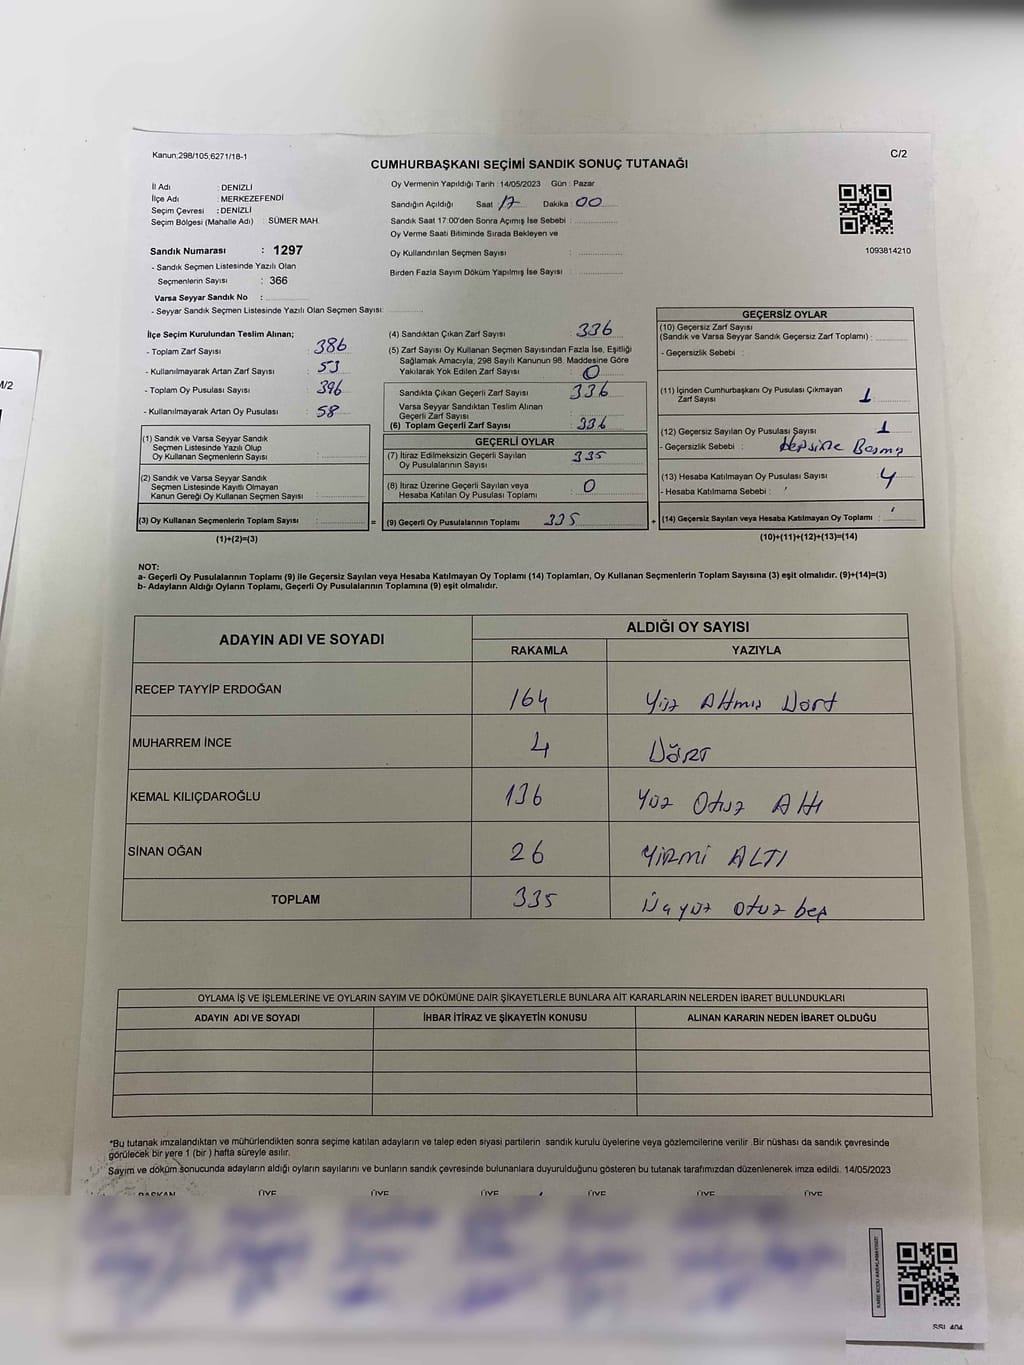 Kanun;298/105,6271/18-1
C/2
CUMHURBAŞKANI SEÇİMİ SANDIK SONUÇ TUTANAĞI
İl Adı : DENİZLİ
İlçe Adı : MERKEZEFENDİ
Seçim Çevresi : DENİZLİ
Seçim Bölgesi (Mahalle Adı) : SÜMER MAH.
Oy Vermenin Yapıldığı Tarih : 14/05/2023 Gün : Pazar
Sandığın Açıldığı Saat 17 Dakika : 00
Sandık Saat 17:00'den Sonra Açımış İse Sebebi :
Oy Verme Saati Bitiminde Sırada Bekleyen ve
Oy Kullandırılan Seçmen Sayısı :
Birden Fazla Sayım Döküm Yapılmış İse Sayısı :
1093814210
Sandık Numarası : 1297
- Sandık Seçmen Listesinde Yazılı Olan
Seçmenlerin Sayısı : 366
Varsa Seyyar Sandık No :
- Seyyar Sandık Seçmen Listesinde Yazılı Olan Seçmen Sayısı:
İlçe Seçim Kurulundan Teslim Alınan;
- Toplam Zarf Sayısı : 386
- Kullanılmayarak Artan Zarf Sayısı : 53
- Toplam Oy Pusulası Sayısı : 396
- Kullanılmayarak Artan Oy Pusulası : 58
(1) Sandık ve Varsa Seyyar Sandık
Seçmen Listesinde Yazılı Olup
Oy Kullanan Seçmenlerin Sayısı :
(2) Sandık ve Varsa Seyyar Sandık
Seçmen Listesinde Kayıtlı Olmayan
Kanun Gereği Oy Kullanan Seçmen Sayısı :
(3) Oy Kullanan Seçmenlerin Toplam Sayısı :
(1)+(2)=(3)
=
(4) Sandıktan Çıkan Zarf Sayısı : 336
(5) Zarf Sayısı Oy Kullanan Seçmen Sayısından Fazla İse, Eşitliği
Sağlamak Amacıyla; 298 Sayılı Kanunun 98. Maddesine Göre
Yakılarak Yok Edilen Zarf Sayısı : 0
Sandıkta Çıkan Geçerli Zarf Sayısı : 336
Varsa Seyyar Sandıktan Teslim Alınan
Geçerli Zarf Sayısı :
(6) Toplam Geçerli Zarf Sayısı : 336
GEÇERLİ OYLAR
(7) İtiraz Edilmeksizin Geçerli Sayılan : 335
Oy Pusulalarının Sayısı
(8) İtiraz Üzerine Geçerli Sayılan veya : 0
Hesaba Katılan Oy Pusulası Toplamı
(9) Geçerli Oy Pusulalarının Toplamı 335
+
GEÇERSİZ OYLAR
(10) Geçersiz Zarf Sayısı
(Sandık ve Varsa Seyyar Sandık Geçersiz Zarf Toplamı) :
- Geçersizlik Sebebi :
(11) İçinden Cumhurbaşkanı Oy Pusulası Çıkmayan
Zarf Sayısı : 1
(12) Geçersiz Sayılan Oy Pusulası Sayısı : 1
- Geçersizlik Sebebi : Hepsine Basmış
(13) Hesaba Katılmayan Oy Pusulası Sayısı : 4
- Hesaba Katılmama Sebebi :
(14) Geçersiz Sayılan veya Hesaba Katılmayan Oy Toplamı :
(10)+(11)+(12)+(13)=(14)
NOT:
a- Geçerli Oy Pusulalarının Toplamı (9) ile Geçersiz Sayılan veya Hesaba Katılmayan Oy Toplamı (14) Toplamları, Oy Kullanan Seçmenlerin Toplam Sayısına (3) eşit olmalıdır. (9)+(14)=(3)
b- Adayların Aldığı Oyların Toplamı, Geçerli Oy Pusulalarının Toplamına (9) eşit olmalıdır.
ADAYIN ADI VE SOYADI ALDIĞI OY SAYISI
RAKAMLA YAZIYLA
RECEP TAYYİP ERDOĞAN 164 Yüz Altmış Dört
MUHARREM İNCE 4 Dört
KEMAL KILIÇDAROĞLU 136 Yüz Otuz Altı
SİNAN OĞAN 26 YİRMİ ALTI
TOPLAM 335 Üçyüz otuz beş
OYLAMA İŞ VE İŞLEMLERİNE VE OYLARIN SAYIM VE DÖKÜMÜNE DAİR ŞİKAYETLERLE BUNLARA AİT KARARLARIN NELERDEN İBARET BULUNDUKLARI
ADAYIN ADI VE SOYADI İHBAR İTİRAZ VE ŞİKAYETİN KONUSU ALINAN KARARIN NEDEN İBARET OLDUĞU
*Bu tutanak imzalandıktan ve mühürlendikten sonra seçime katılan adayların ve talep eden siyasi partilerin sandık kurulu üyelerine veya gözlemcilerine verilir .Bir nüshası da sandık çevresinde
görülecek bir yere 1 (bir ) hafta süreyle asılır.
Sayım ve döküm sonucunda adayların aldığı oyların sayılarını ve bunların sandık çevresinde bulunanlara duyurulduğunu gösteren bu tutanak tarafımızdan düzenlenerek imza edildi. 14/05/2023
BAŞKAN ÜYE ÜYE ÜYE ÜYE ÜYE ÜYE